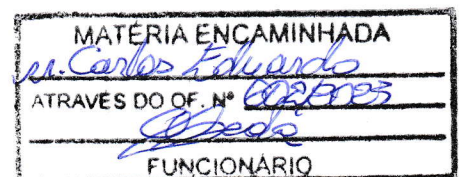 MATÉRIA ENCAMINHADA
Carlos Eduardo
ATRAVÉS DO OF. Nº 602/2023
FUNCIONÁRIO